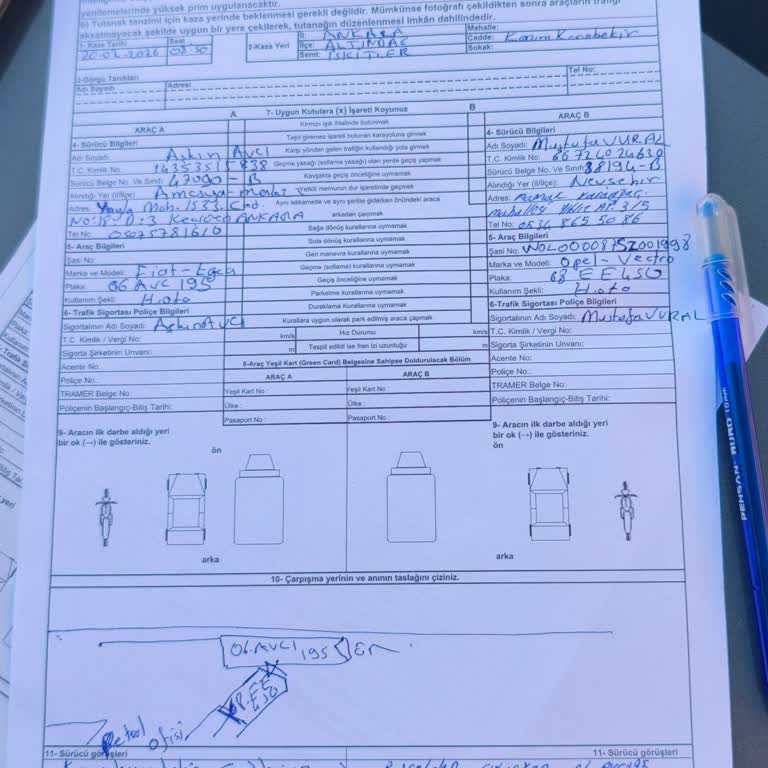 yenilemelerinde yüksek prim uygulanacaktır.
b) Tutanak tanzimi için kaza yerinde beklenmesi gerekli değildir. Mümkünse fotoğrafı çekildikten sonra araçların trafiği
aksatmayacak şekilde uygun bir yere çekilerek, tutanağın düzenlenmesi imkân dahilindedir.
1- Kaza Tarihi
Saati
08:30
2-Kaza Yeri
İl: ANKARA
İlçe: ALTINDAĞ
Semt: İSKİTLER
Mahalle:
Cadde: Kazım Karabekir
Sokak:
3-Görgü Tanıkları
Adı Soyadı
Adresi
Tel No:
A 7- Uygun Kutulara (x) İşareti Koyunuz B
Kırmızı ışık ihlalinde bulunmak
Taşıt giremez işareti bulunan karayoluna girmek
Karşı yönden gelen trafiğin kullandığı yola girmek
Geçme yasağı (sollama yasağı) olan yerde geçiş yapmak
Kavşakta geçiş önceliğine uymamak
Yetkili memurun dur işaretinde geçmek
Aynı istikamette ve aynı şeritte giderken öndeki araca
arkadan çarpmak
Sağa dönüş kurallarına uymamak
Sola dönüş kurallarına uymamak
Geri manevra kurallarına uymamak
Geçme (sollama) kurallarına uymamak
Geçiş önceliğine uymamak
Parketme kurallarına uymamak
Duraklama Kurallarına uymamak
Kurallara uygun olarak park edilmiş araca çarpmak
km/s Hız Durumu km/s
m Tespit edildi ise fren izi uzunluğu m
ARAÇ A
4- Sürücü Bilgileri
Adı Soyadı: Aşkın Avcı
T.C. Kimlik No:
Sürücü Belge No. Ve Sınıfı: 47000-B
Alındığı Yer (il/ilçe): Amasya-
Adres: Yayla Mah. 1533. Cad.
ANKARA
Tel No:
5- Araç Bilgileri
Şasi No:
Marka ve Modeli: Fiat-Egea
Plaka: 06 AVC 195
Kullanım Şekli: H.oto
6- Trafik Sigortası Poliçe Bilgileri
Sigortalının Adı Soyadı: Aşkın AVCI
T.C. Kimlik No / Vergi No:
Sigorta Şirketinin Unvanı:
Acente No:
Poliçe No:
TRAMER Belge No:
Poliçenin Başlangıç-Bitiş Tarihi:
ARAÇ B
4- Sürücü Bilgileri
Adı Soyadı: Mustafa VURAL
T.C. Kimlik No: 66724024630
Sürücü Belge No. Ve Sınıfı: 38194-B
Alındığı Yer (il/ilçe): Nevşehir
Adres:
Tel No: 0534 865 50 86
5- Araç Bilgileri
Şasi No:
Marka ve Modeli: Opel-Vectra
Plaka: 68 EE 450
Kullanım Şekli: H.oto
6-Trafik Sigortası Poliçe Bilgileri
Sigortalının Adı Soyadı: Mustafa VURAL
T.C. Kimlik No / Vergi No:
Sigorta Şirketinin Unvanı:
Acente No:
Poliçe No.:
TRAMER Belge No:
Poliçenin Başlangıç-Bitiş Tarihi:
8-Araç Yeşil Kart (Green Card) Belgesine Sahipse Doldurulacak Bölüm
ARAÇ A ARAÇ B
Yeşil Kart No : Yeşil Kart No :
Ülke : Ülke :
Pasaport No : Pasaport No :
9- Aracın ilk darbe aldığı yeri
bir ok (→) ile gösteriniz.
ön
arka
9- Aracın ilk darbe aldığı yeri
bir ok (→) ile gösteriniz.
ön
arka
10- Çarpışma yerinin ve anının taslağını çiziniz.
06.AVC 195
68.EE
450
Petrol ofisi
11- Sürücü görüşleri
11- Sürücü görüşleri
PENSAN BURO 1.0 mm